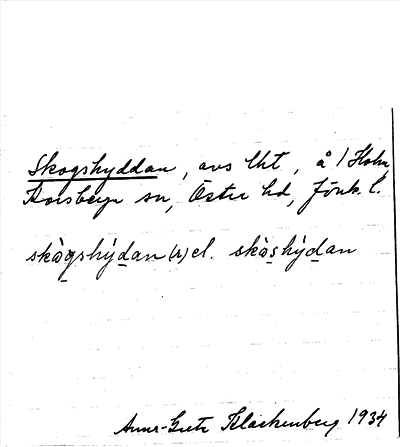 Skogshyddan, avs lht, å 1 Holm
Korsberga sn, Östra hd, Jönk. l.
skògshỳdan (r) el. skòshỳdan
Anna-Greta Klackenberg 1934